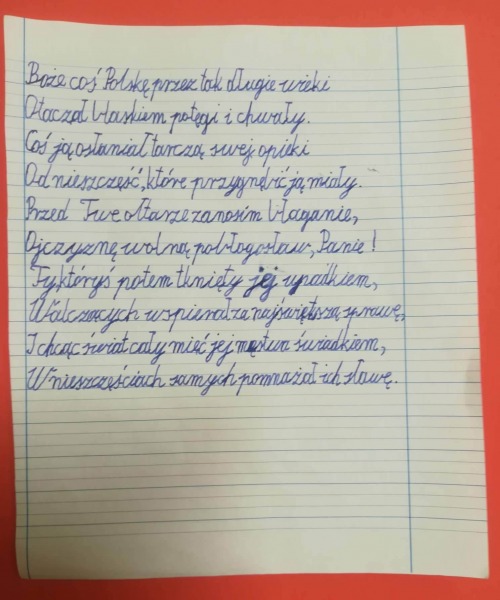 Boże coś Polskę przez tak długie wieki
Otaczał blaskiem potęgi i chwały.
Coś ją osłaniał tarczą swej opieki
Od nieszczęść, które przygnębić ją miały.
Przed Twe ołtarze zanosim błaganie,
Ojczyznę wolną pobłogosław, Panie!
Tyktóryś potem tknięty jej upadkiem,
Walczących wspierał za najświętszą sprawę,
I chcąc świat cały mieć jej męstwa świadkiem,
W nieszczęściach samych pomnażał ich sławę.